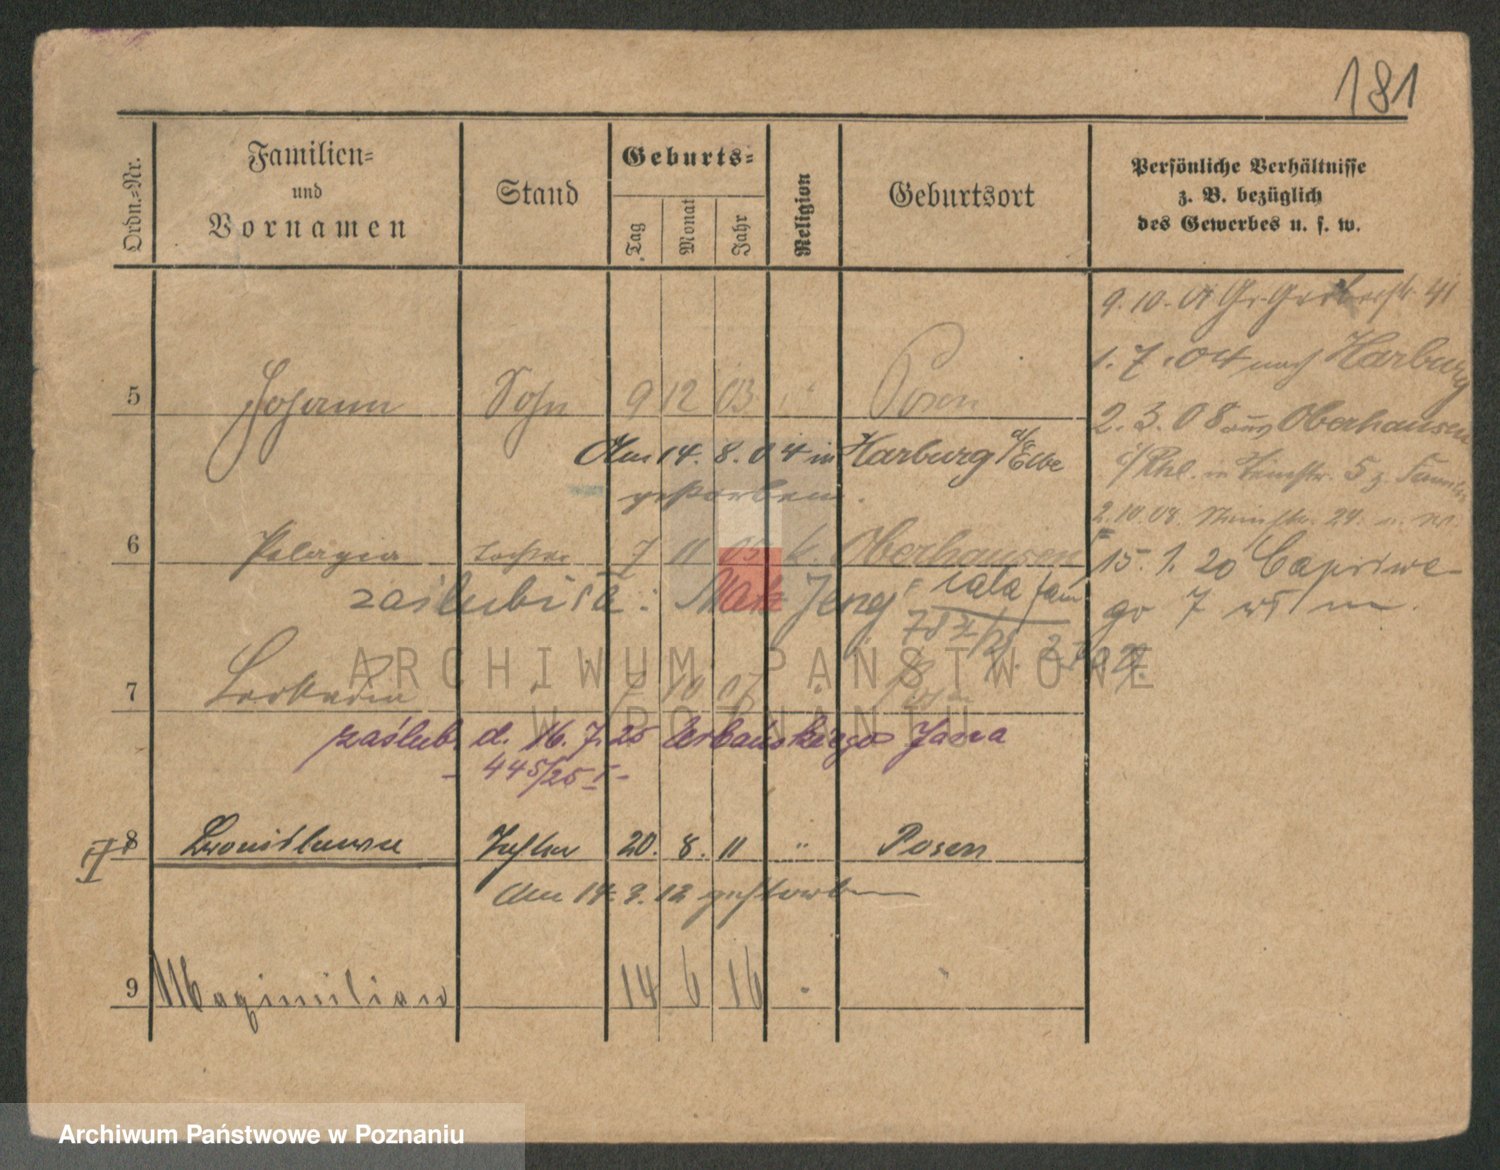 181
Ordn.-Nr.
Familien-
und
Vornamen
Stand
Geburts-
Tag
Monat
Jahr
Religion
Geburtsort
Persönliche Verhältnisse
z. B. bezüglich
des Gewerbes u. s. w.
9. 10. 41
1. 7. 04 nach Harburg
5 Johann Sohn 9 12 03 " Posen
2. 3. 08 aus Oberhausen
Am 14. 8. 04 in Harburg a/Elbe
gestorben.
i/Rhl. in 5 z.
2. 10. 08. 24.
6 Pelagia Tochter 7 11 05 k. Oberhausen
15. 1. 20 Capriwe-
zaślubiła: cała fam
go 7
7 Leokadia " 10 07 "
zaślub. d. 16. 7. 25 Urbańskiego Jana
- 445/25 I -
8 Bronislawa Tochter 20. 8. 11 " Posen
II
Am 14. 3. 12 gestorben
9 Maximilian 14 6 16 " "
ARCHIWUM PAŃSTWOWE
W POZNANIU
Archiwum Państwowe w Poznaniu